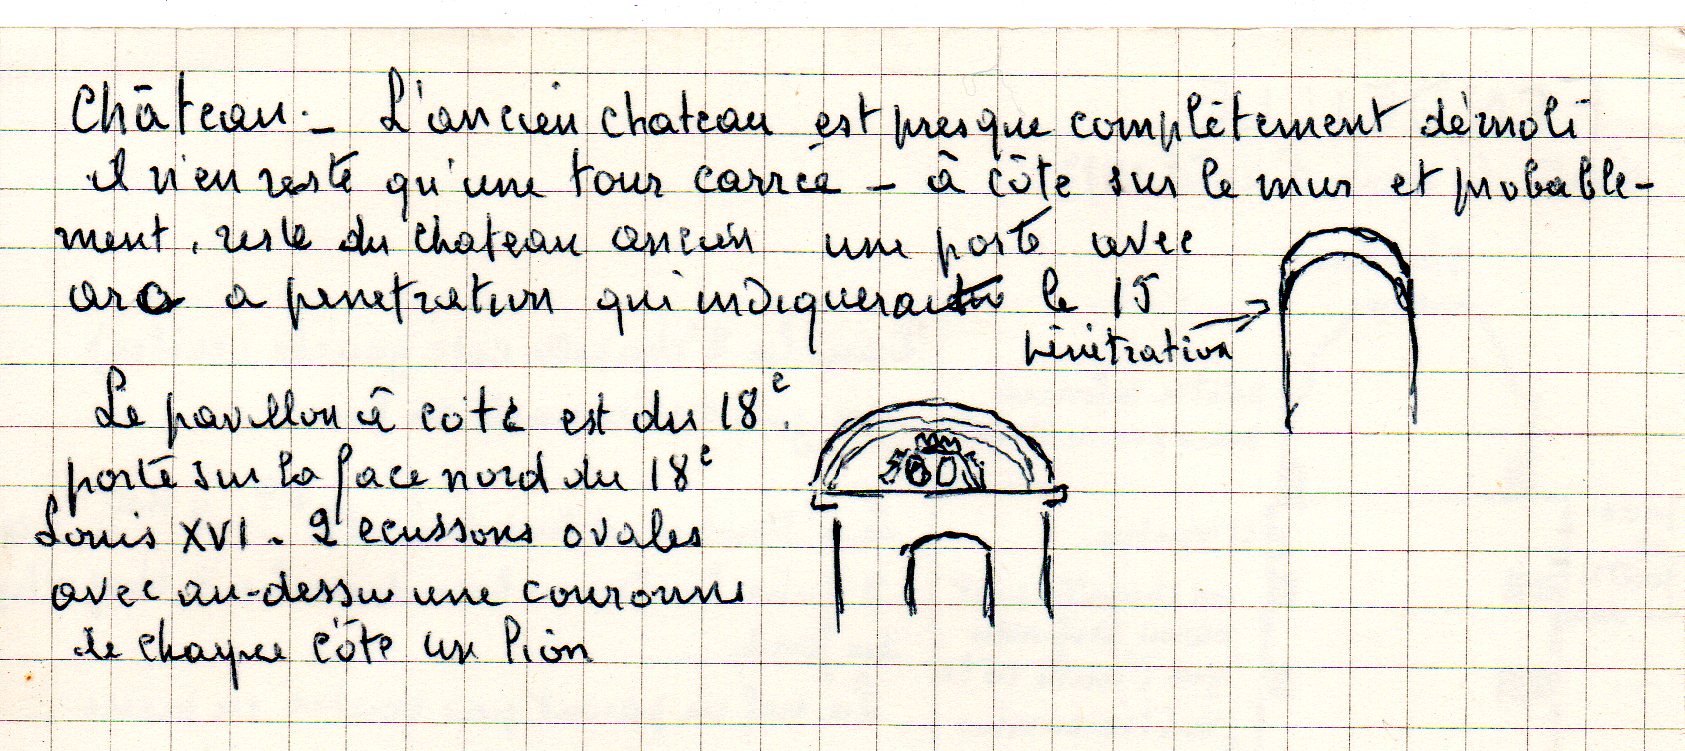 Château. - L'ancien chateau est presque complètement démoli
il n'en reste qu'une tour carrée - à côté sur le mur et probable-
ment, reste du chateau ancien une porte avec
arc a penetration qui indiquerait le 15
pénétration
Le pavillon à coté est du 18e.
porte sur la face nord du 18e
Louis XVI - 2 ecussons ovales
avec au-dessus une couronne
de chaque côté un lion